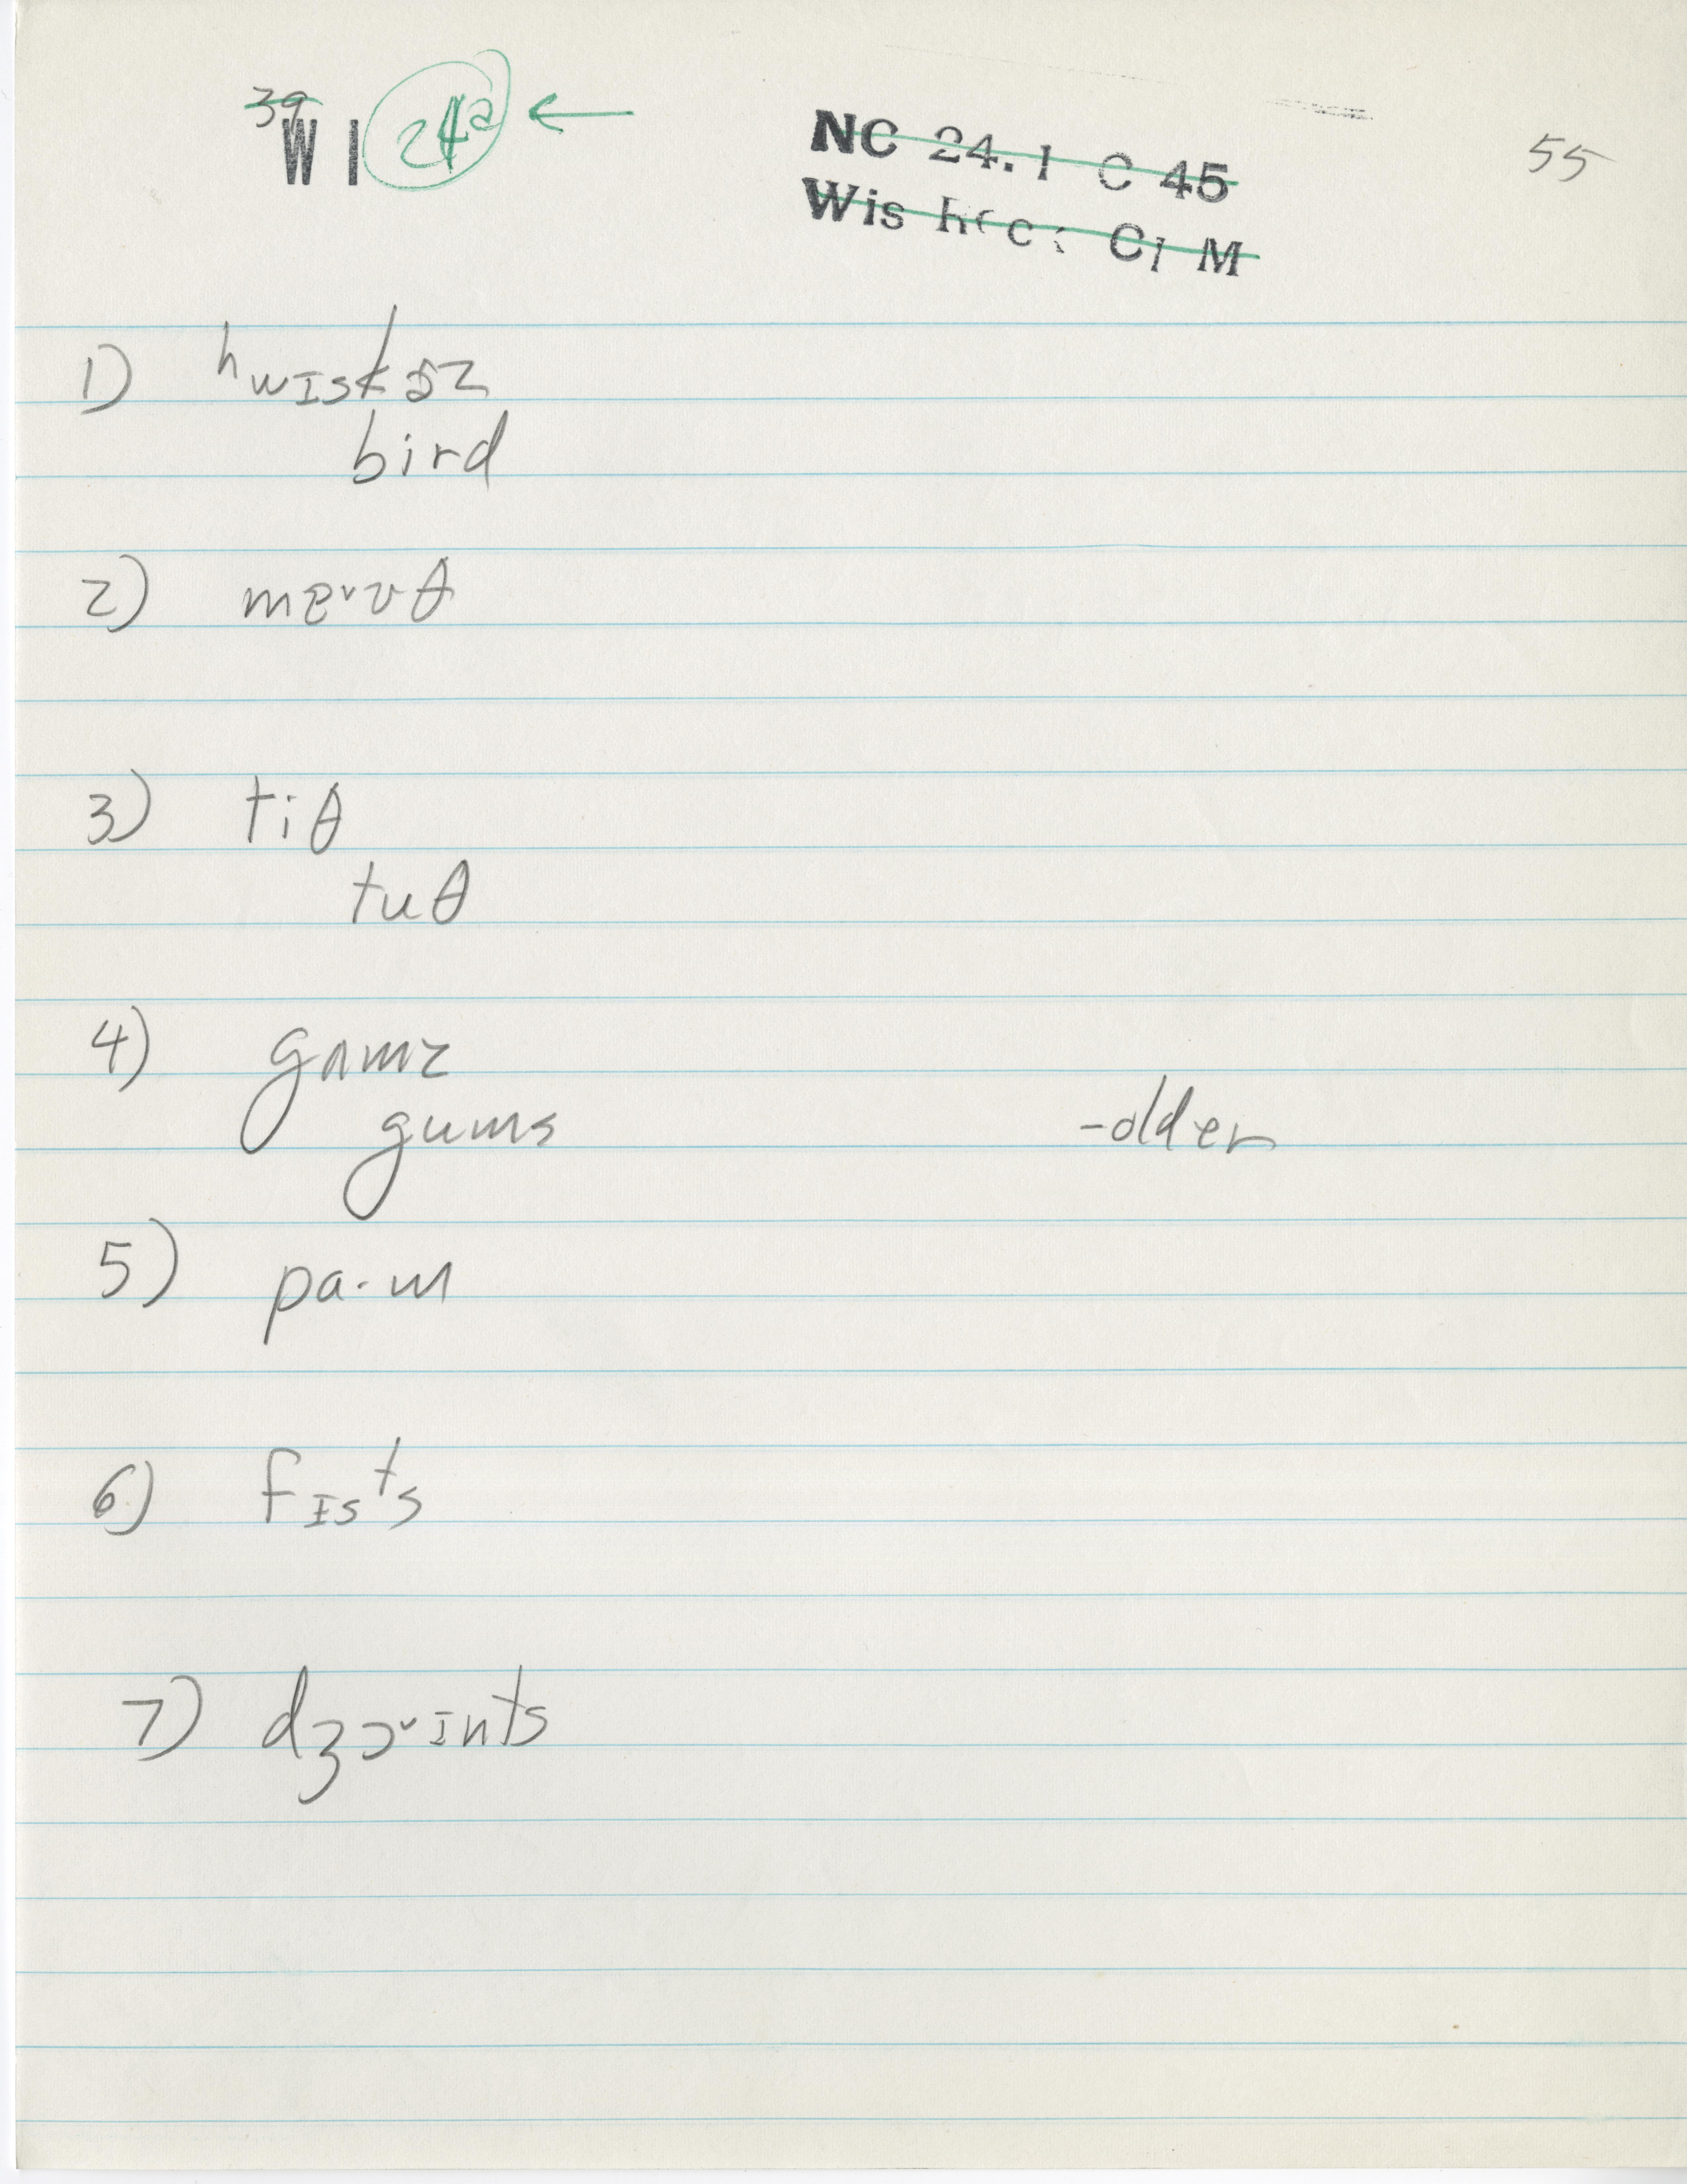 39
W I 24a ←
NC 24.1 C 45
55
1) ʰwɪskɚz
bird
2) mɐᵛʊθ
3) tiθ
tuθ
4) gʌmz
gums
-older
5) pa·m
6) fɪsᵗs
7) dʒɔᵛɪnts